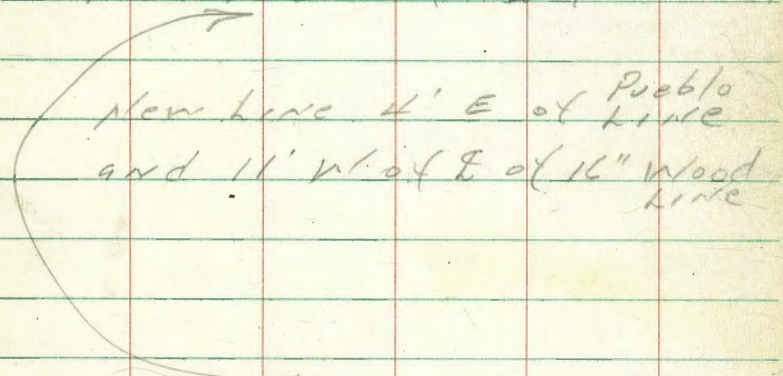 New Line 4' E of Pueblo Line
and 11' W of ℄ of 16" Wood Line